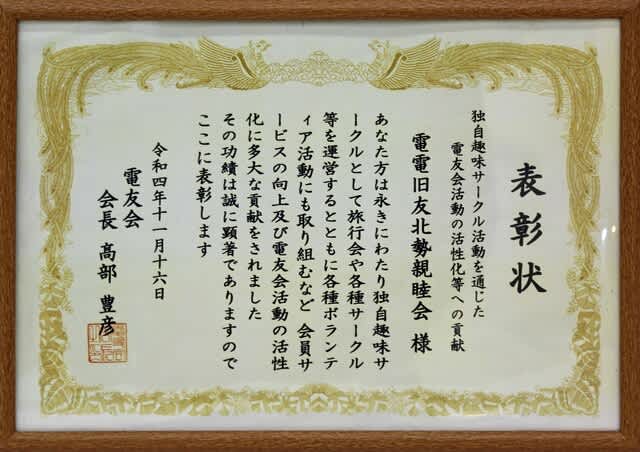 表彰状
独自趣味サークル活動を通じた
電友会活動の活性化等への貢献
電電旧友北勢親睦会 様
あなた方は永きにわたり独自趣味サ
ークルとして旅行会や各種サークル
等を運営するとともに各種ボランテ
ィア活動にも取り組むなど 会員サ
ービスの向上及び電友会活動の活性
化に多大な貢献をされました
その功績は誠に顕著でありますので
ここに表彰します
令和四年十一月十六日
電友会
会長 髙部 豊彦